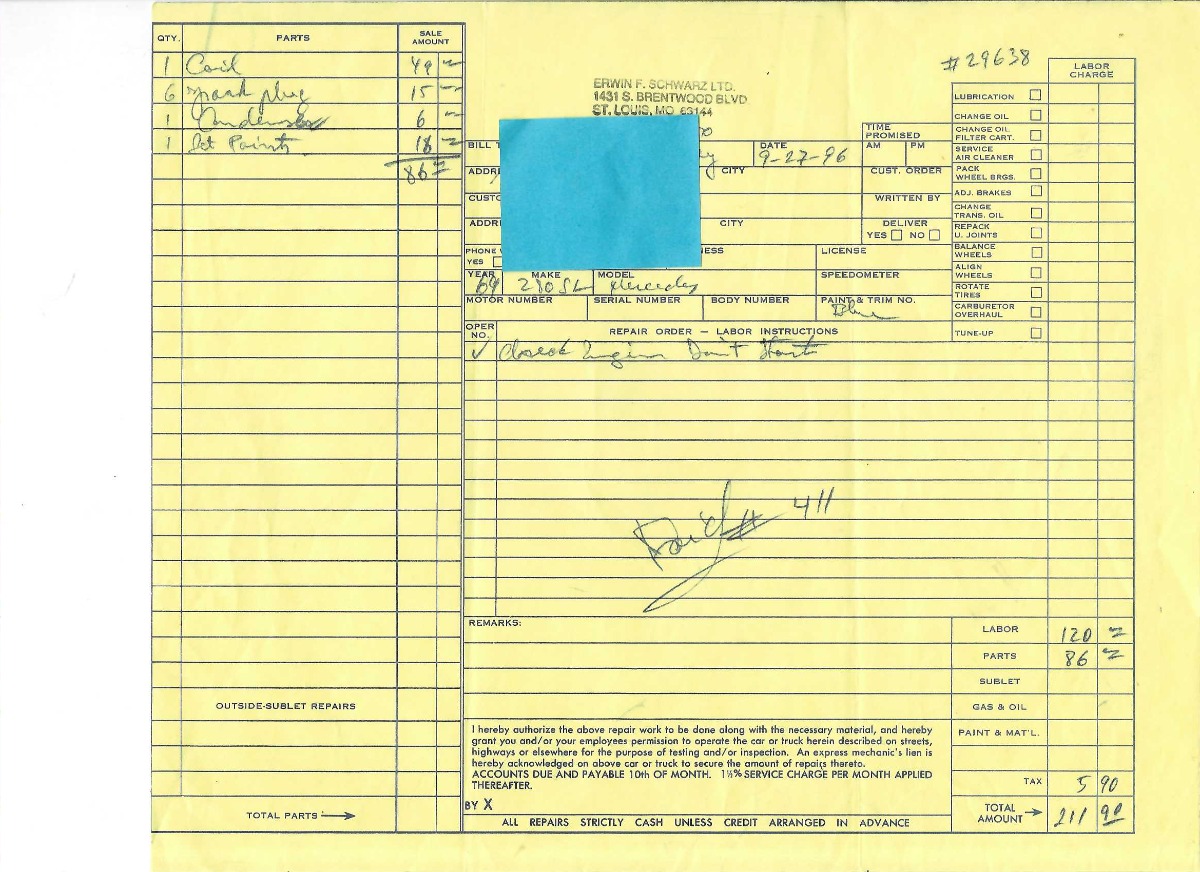 QTY. PARTS SALE AMOUNT
1 Coil 49
6 Spark plug 15
1 Condenser 6
1 Set Points 16
86
OUTSIDE-SUBLET REPAIRS
TOTAL PARTS →
ERWIN F. SCHWARZ LTD.
1431 S. BRENTWOOD BLVD
ST. LOUIS, MO 63144
#29638
BILL
DATE 9-27-96
TIME PROMISED
AM PM
ADDR
CITY
CUST. ORDER
CUSTO
WRITTEN BY
ADDR
CITY
DELIVER
YES NO
PHONE
YES
NESS
LICENSE
YEAR
MAKE 280SL
MODEL Mercedes
SPEEDOMETER
MOTOR NUMBER
SERIAL NUMBER
BODY NUMBER
PAINT & TRIM NO. Blue
OPER NO.
REPAIR ORDER – LABOR INSTRUCTIONS
✓ Check Engine Don't Start
Paid # 411
REMARKS:
LABOR CHARGE
LUBRICATION
CHANGE OIL
CHANGE OIL FILTER CART.
SERVICE AIR CLEANER
PACK WHEEL BRGS.
ADJ. BRAKES
CHANGE TRANS. OIL
REPACK U. JOINTS
BALANCE WHEELS
ALIGN WHEELS
ROTATE TIRES
CARBURETOR OVERHAUL
TUNE-UP
LABOR 120
PARTS 86
SUBLET
GAS & OIL
PAINT & MAT'L.
TAX 5 90
TOTAL AMOUNT → 211 90
I hereby authorize the above repair work to be done along with the necessary material, and hereby
grant you and/or your employees permission to operate the car or truck herein described on streets,
highways or elsewhere for the purpose of testing and/or inspection. An express mechanic's lien is
hereby acknowledged on above car or truck to secure the amount of repairs thereto.
ACCOUNTS DUE AND PAYABLE 10th OF MONTH. 1½% SERVICE CHARGE PER MONTH APPLIED
THEREAFTER.
BY X
ALL REPAIRS STRICTLY CASH UNLESS CREDIT ARRANGED IN ADVANCE